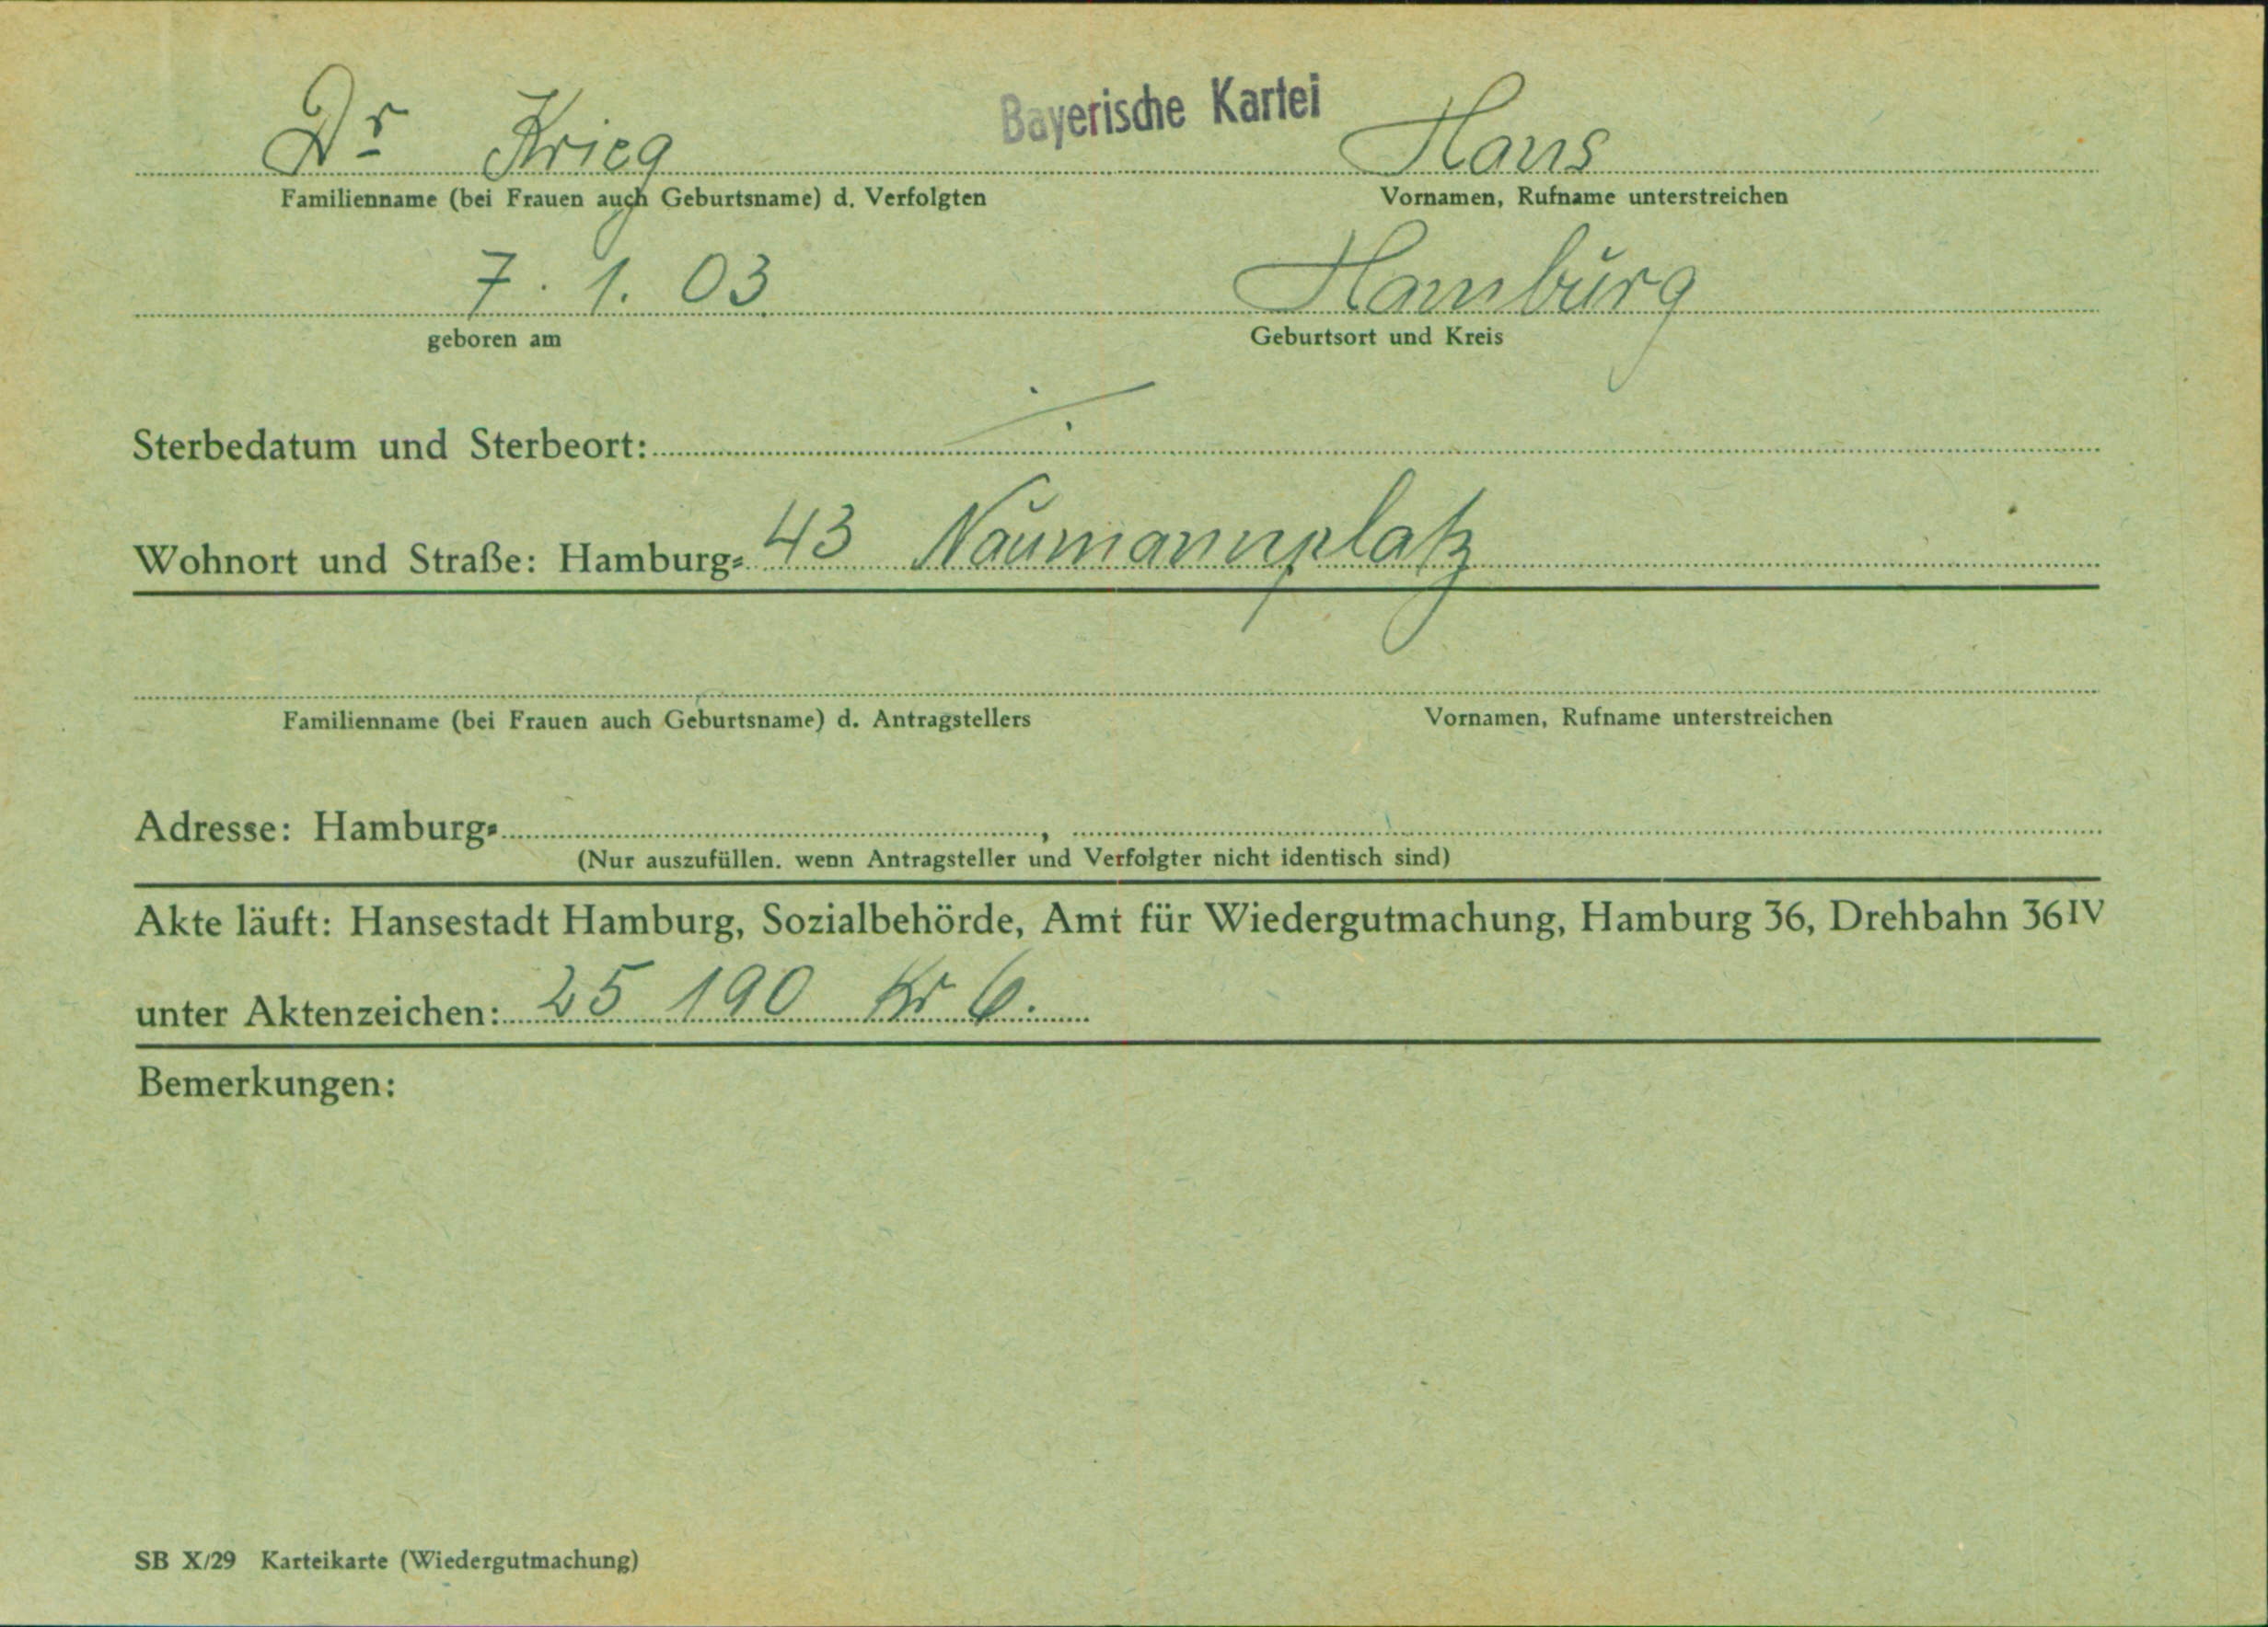 Bayerische Kartei
Dr Krieg Hans
Familienname (bei Frauen auch Geburtsname) d. Verfolgten Vornamen, Rufname unterstreichen
7. 1. 03 Hamburg
geboren am Geburtsort und Kreis
Sterbedatum und Sterbeort:
Wohnort und Straße: Hamburg- 43 Naumannplatz
Familienname (bei Frauen auch Geburtsname) d. Antragstellers Vornamen, Rufname unterstreichen
Adresse: Hamburg- ,
(Nur auszufüllen. wenn Antragsteller und Verfolgter nicht identisch sind)
Akte läuft: Hansestadt Hamburg, Sozialbehörde, Amt für Wiedergutmachung, Hamburg 36, Drehbahn 36 IV
unter Aktenzeichen: 25 190 Kr 6.
Bemerkungen:
SB X/29 Karteikarte (Wiedergutmachung)